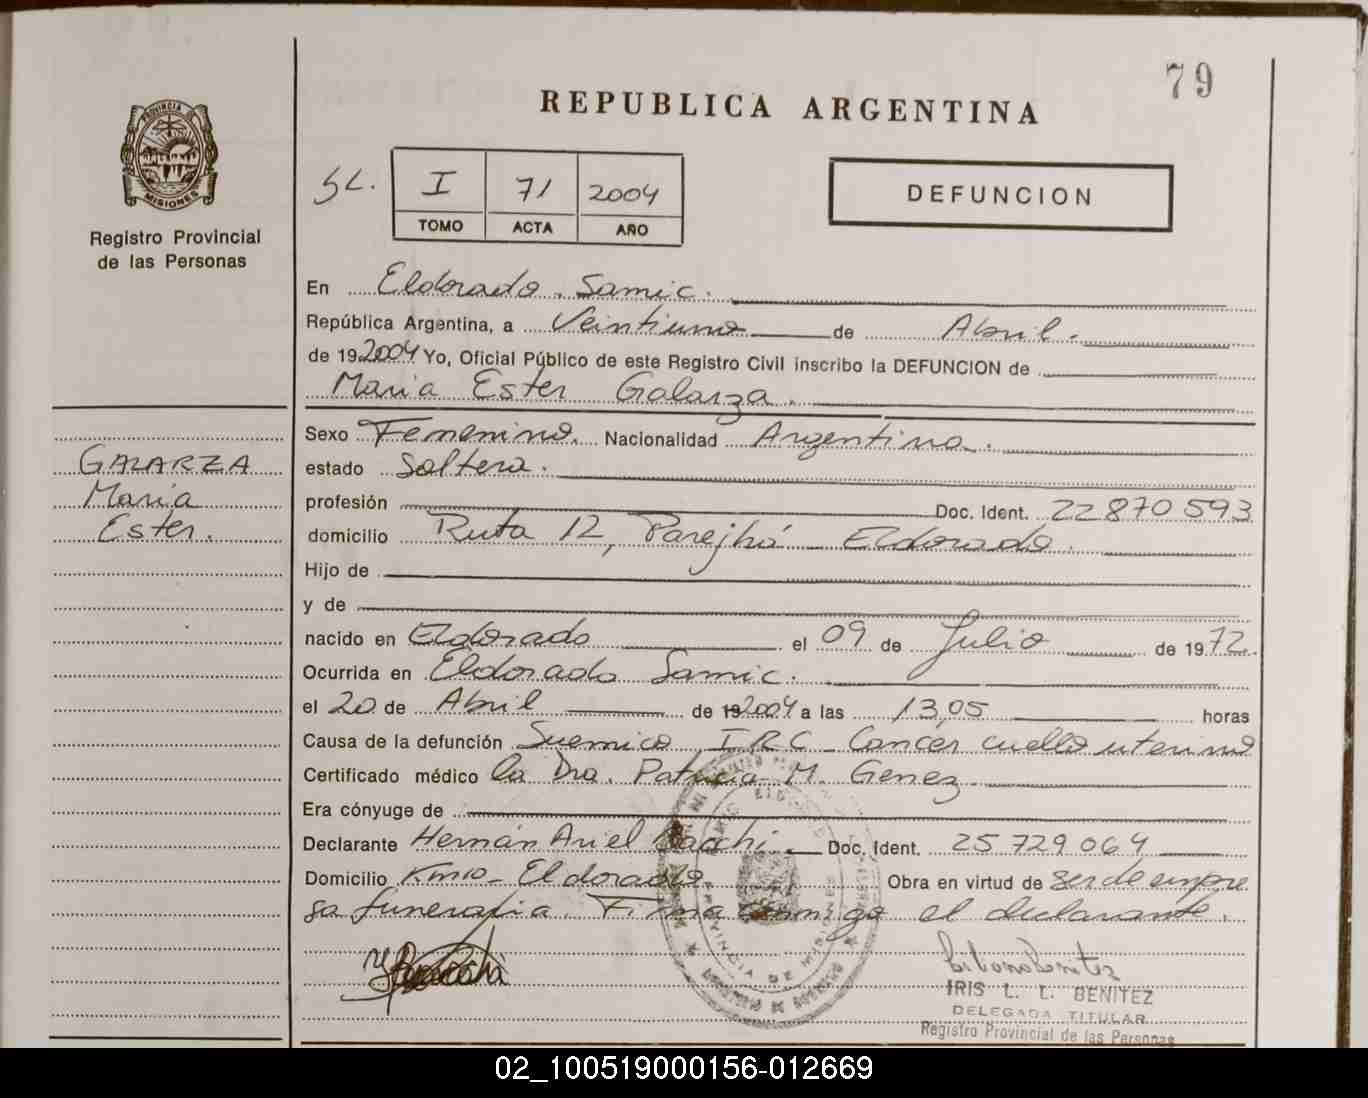 79
REPUBLICA ARGENTINA
PROVINCIA DE
MISIONES
Registro Provincial
de las Personas
SL.
I 71 2004
TOMO ACTA AÑO
DEFUNCION
En Eldorado. Samic.
República Argentina, a Veintiuno de Abril.
de 192004 Yo, Oficial Público de este Registro Civil inscribo la DEFUNCION de
Maria Ester Galarza.
Sexo Femenino. Nacionalidad Argentina.
GALARZA
Maria
Ester.
estado Soltera.
profesión Doc. Ident. 22 870 593
domicilio Ruta 12, Parejhá - Eldorado.
Hijo de
y de
nacido en Eldorado el 09 de Julio de 1972.
Ocurrida en Eldorado Samic.
el 20 de Abril de 192004 a las 13,05 horas
Causa de la defunción IRC - Cancer cuello uterino
Certificado médico la Dra. Patricia M. Genez
Era cónyuge de
Declarante Hernán Ariel Doc. Ident. 25 729 064
Domicilio Km10 - Eldorado Obra en virtud de ser de empre
sa funeraria. Firma conmigo el declarante.
PROVINCIA DE MISIONES
IRIS L. L. BENITEZ
DELEGADA TITULAR
Registro Provincial de las Personas
02_100519000156-012669